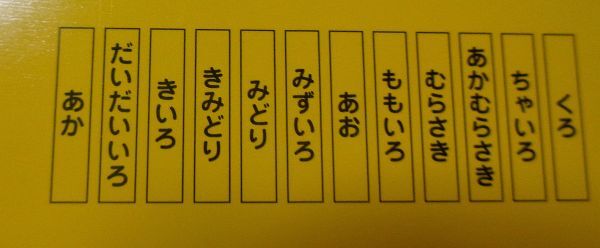 くろ
ちゃいろ
あかむらさき
むらさき
ももいろ
あお
みずいろ
みどり
きみどり
きいろ
だいだいいろ
あか